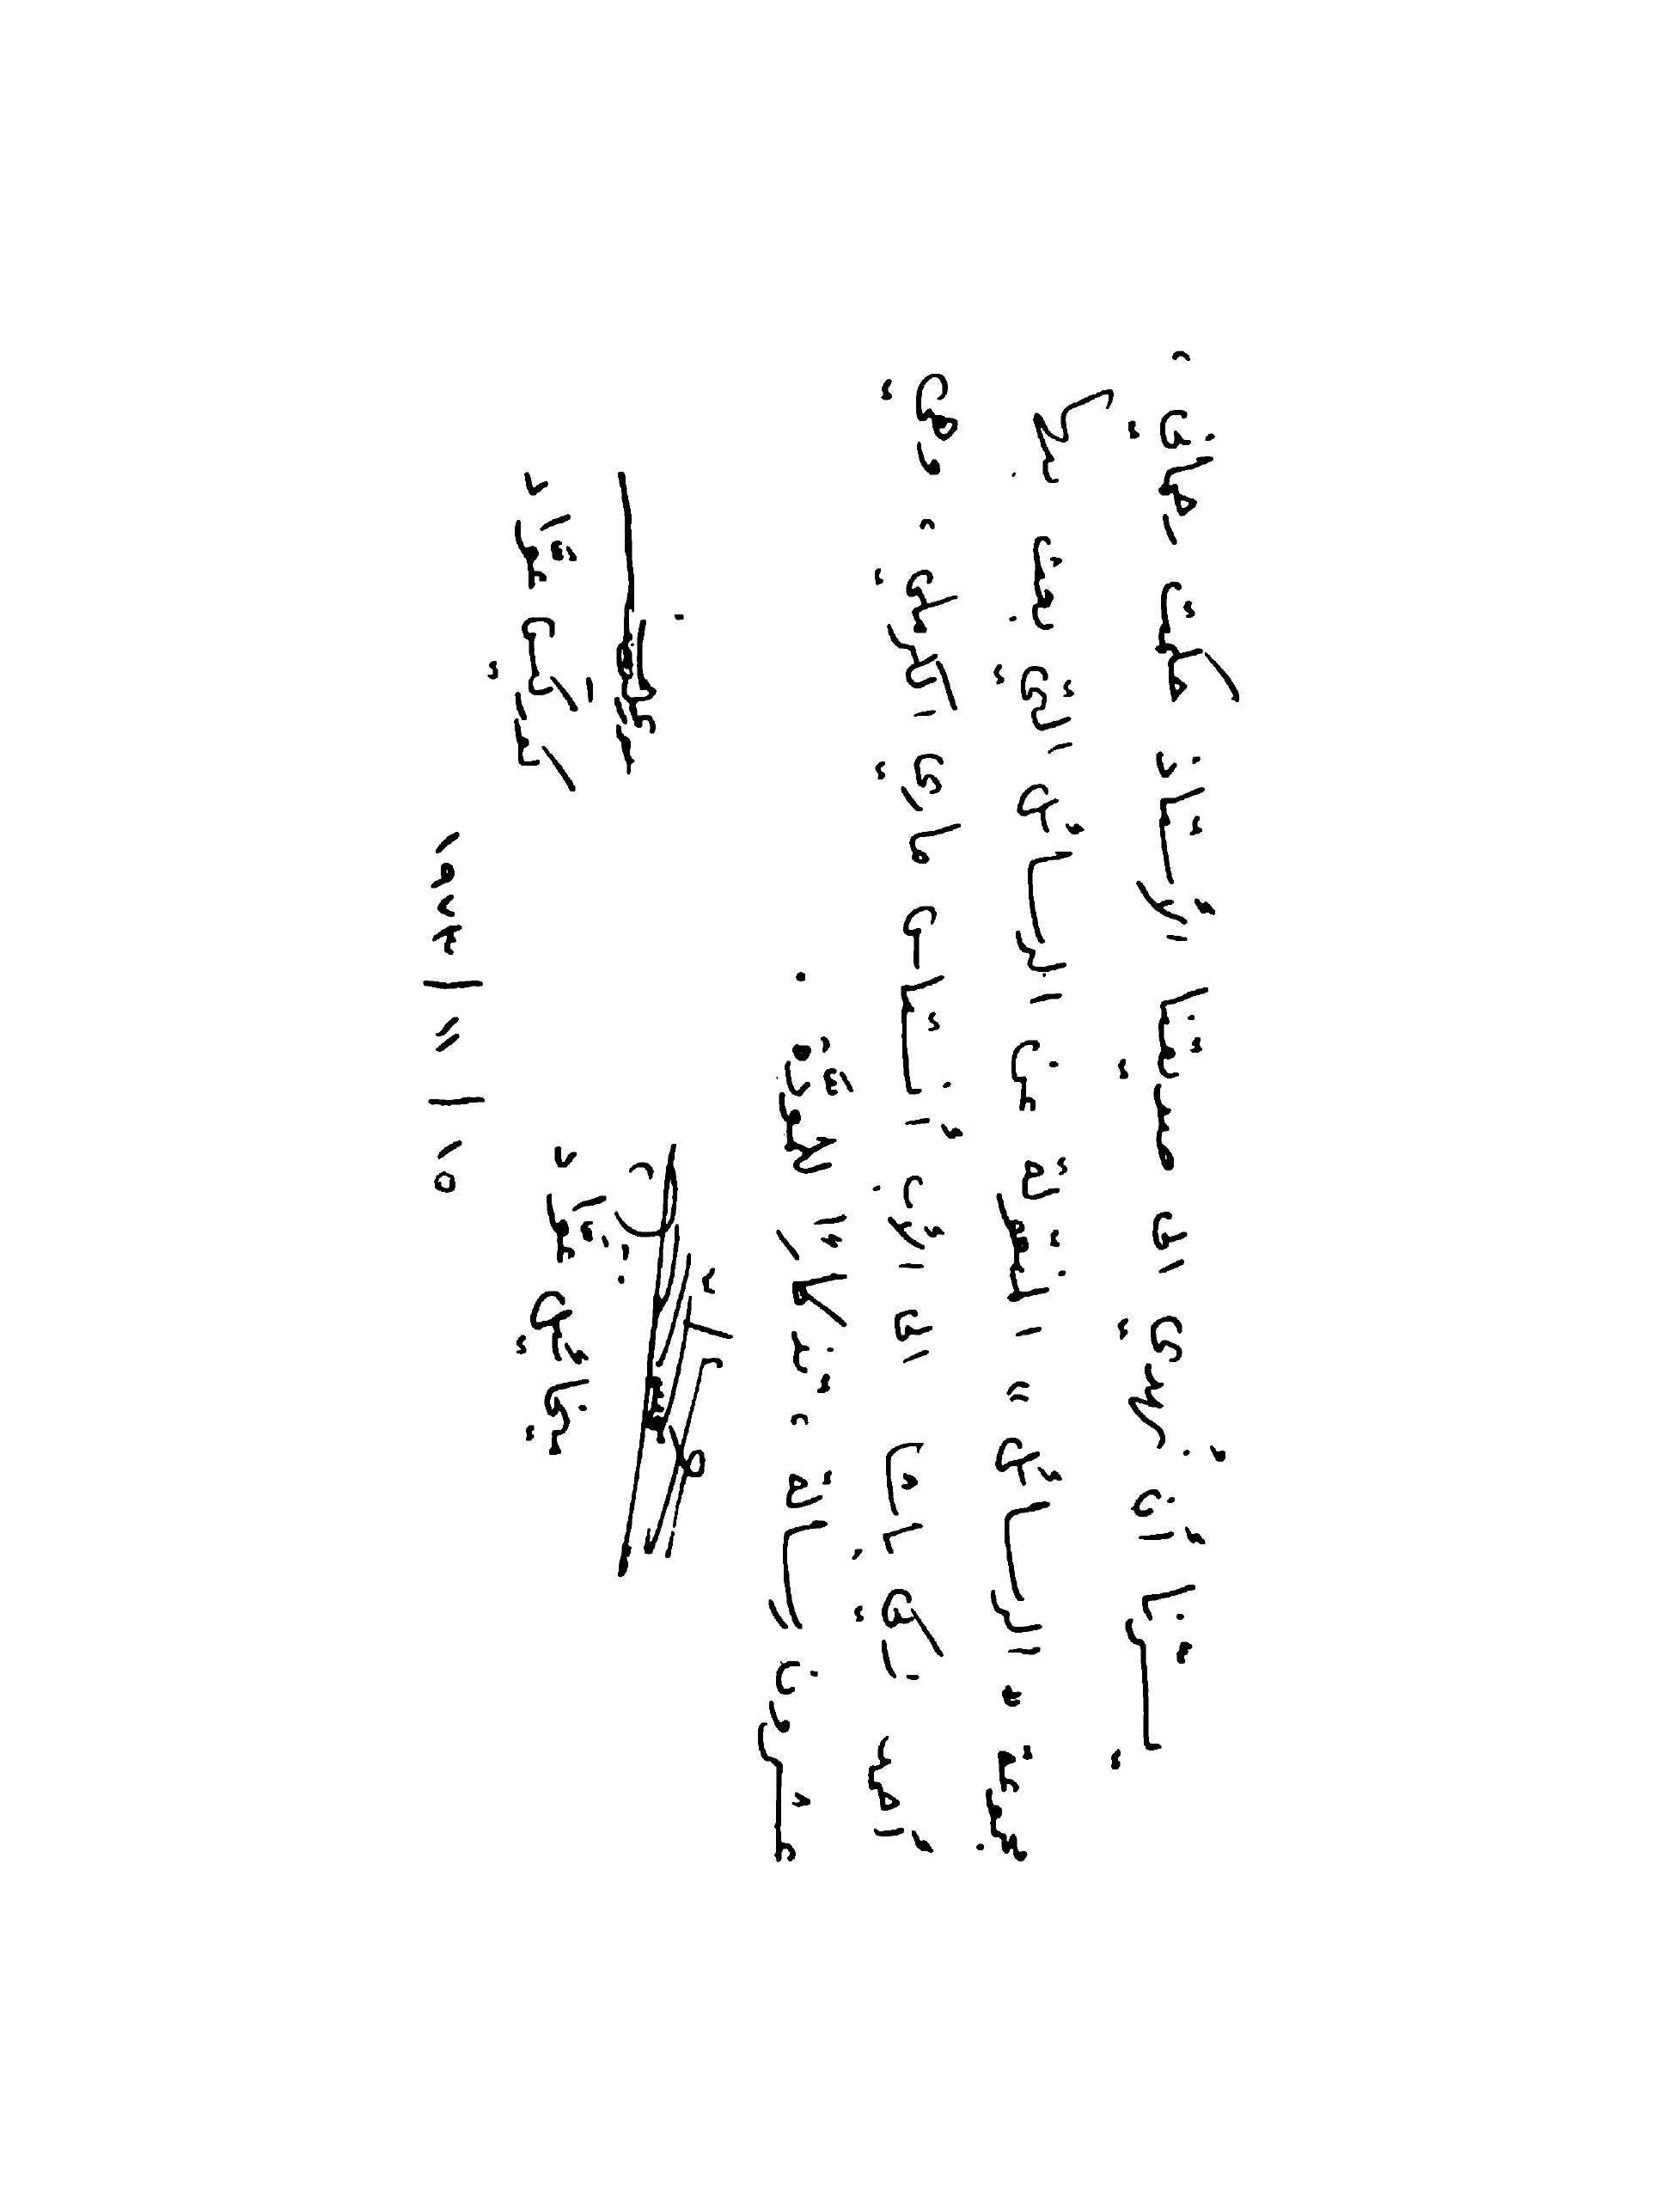 يسرّنا أن نهدي الى صديقنا الأستاذ حكمت رحماني ،
مجموعة « الرسائل » المنقولة عن الرسائل التي بعث بها
أحمد زكي باشا الى الأب أنستاس ماري الكرملي ، وهي
عشرون رسالة ، تذكارًا للمودّة .
ميخائيل عوّاد
كوركيس عوّاد
١٥ / ١١ / ١٩٧٤